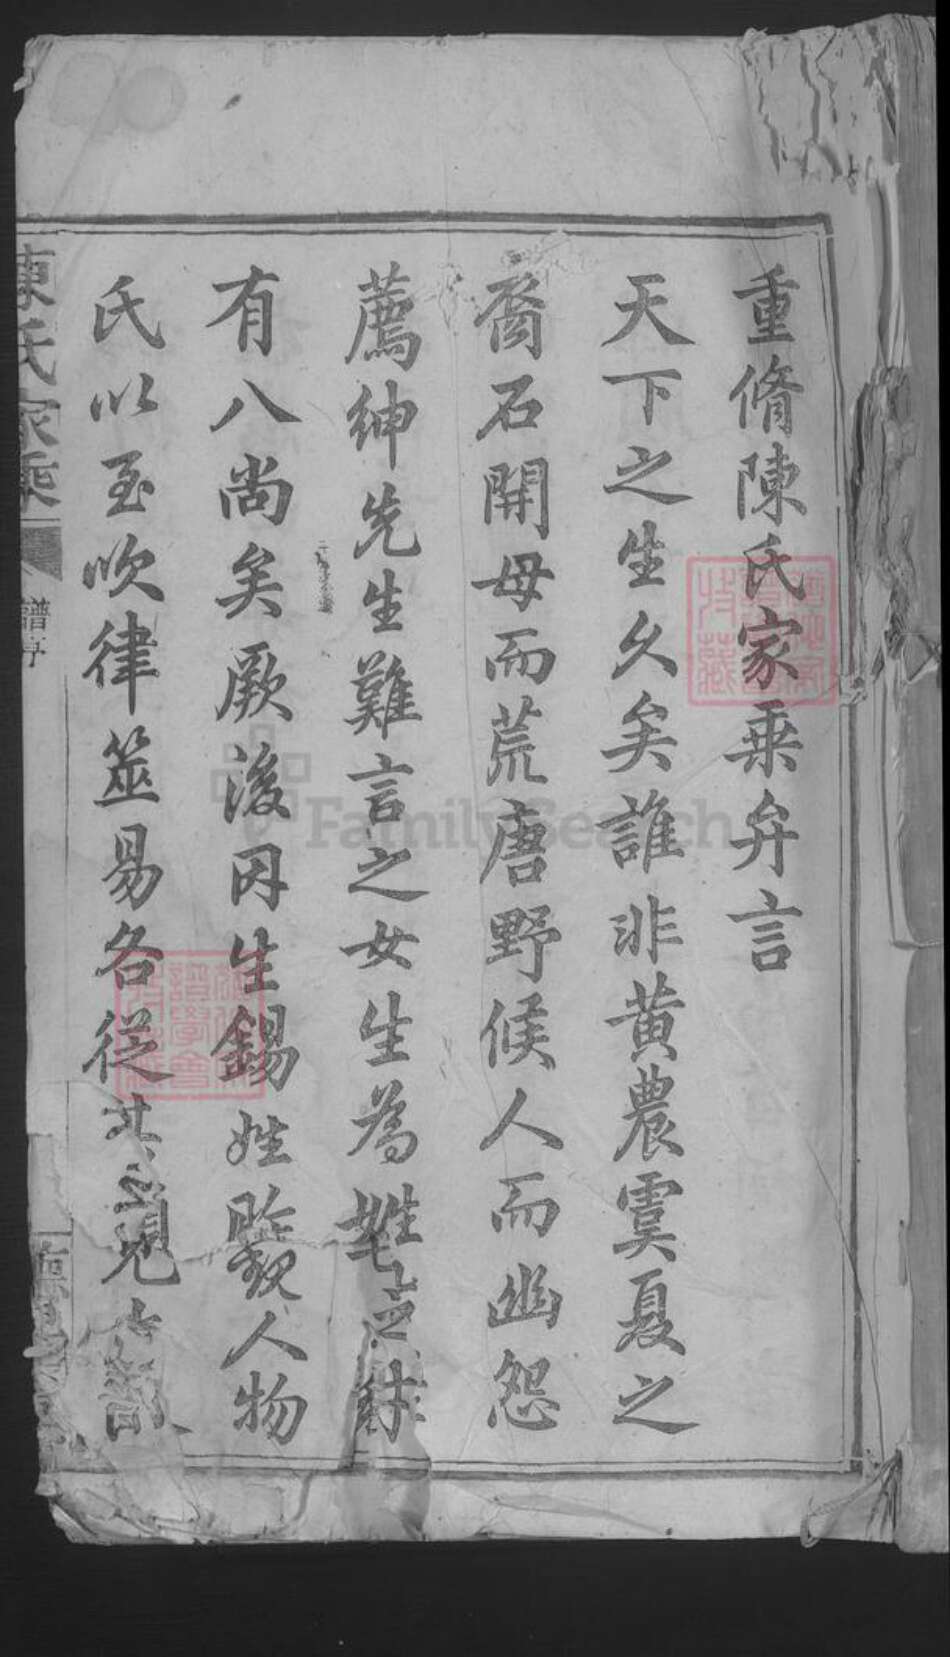 重脩陳氏家乗弁言
天下之生久矣誰非黄農虞夏之
裔石開母而荒唐野候人而幽怨
薦紳先生難言之女生為姓
有八尚矣厥後因生錫姓 人物
氏以至吹律筮易各從其
陳氏家乗
譜序
FamilySearch